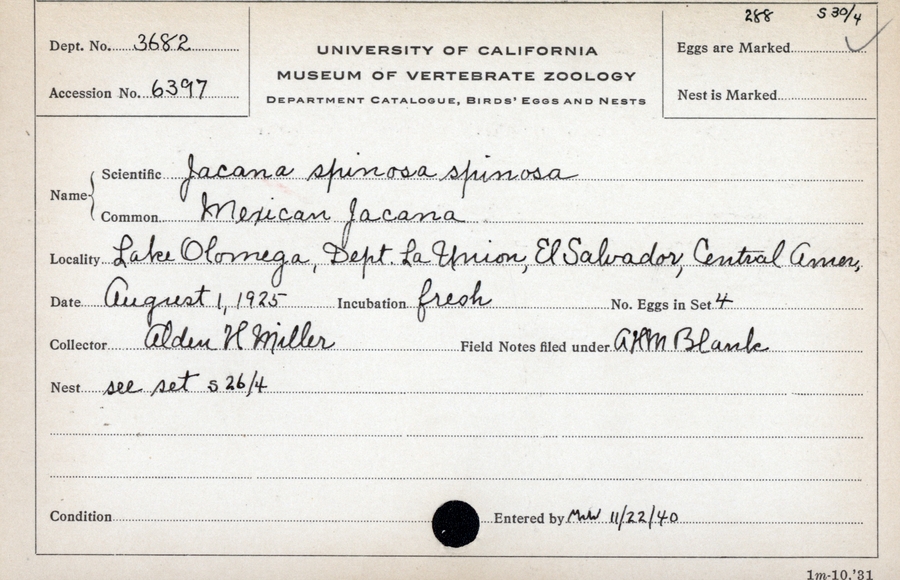 288 S 30/4
Dept. No. 3682
UNIVERSITY OF CALIFORNIA
Eggs are Marked ✓
MUSEUM OF VERTEBRATE ZOOLOGY
Accession No. 6397
DEPARTMENT CATALOGUE, BIRDS' EGGS AND NESTS
Nest is Marked
Name { Scientific Jacana spinosa spinosa
Common Mexican Jacana
Locality Lake Olomega, Dept La Union, El Salvador, Central Amer,
Date August 1, 1925 Incubation fresh No. Eggs in Set 4
Collector Alden H Miller Field Notes filed under AHM Blank
Nest see set S 26/4
Condition Entered by MWW 11/22/40
1m-10,'31